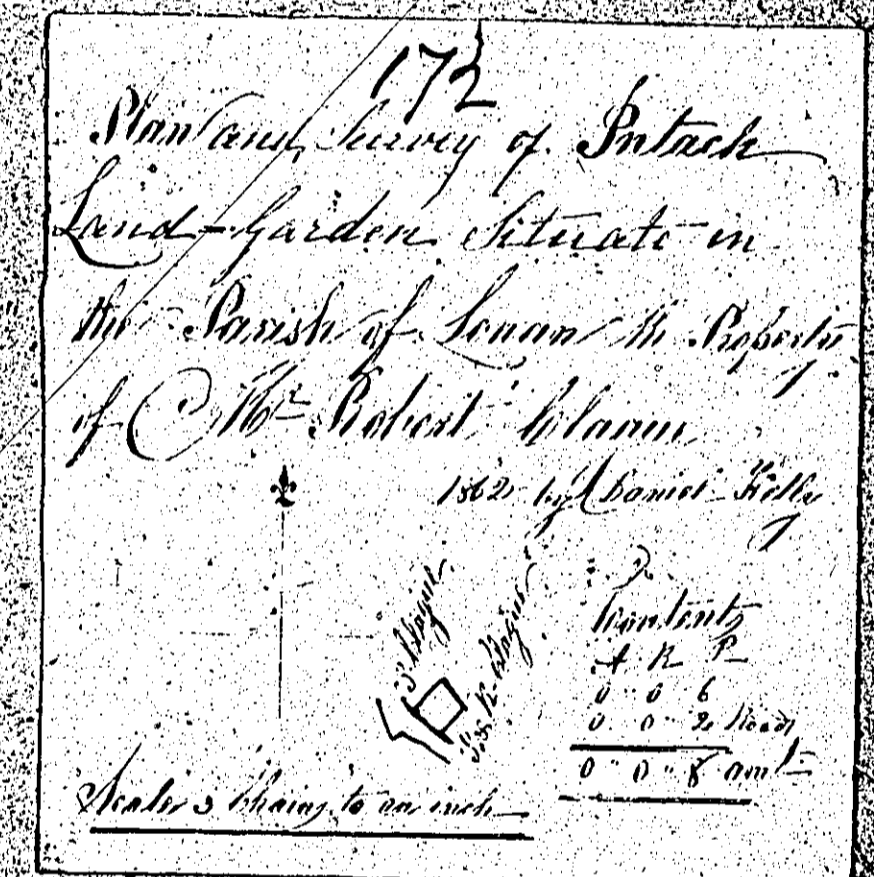 172
Plan and Survey of Intack
Land - Garden Situate in
the Parish of Lonan the Property
of Mr Robert
1862 by Daniel Kelly
Contents
A R P
0 " 0 " 6
0 " 0 " 2 Road
0 " 0 " 8 amt
Scale 3 Chains to an inch